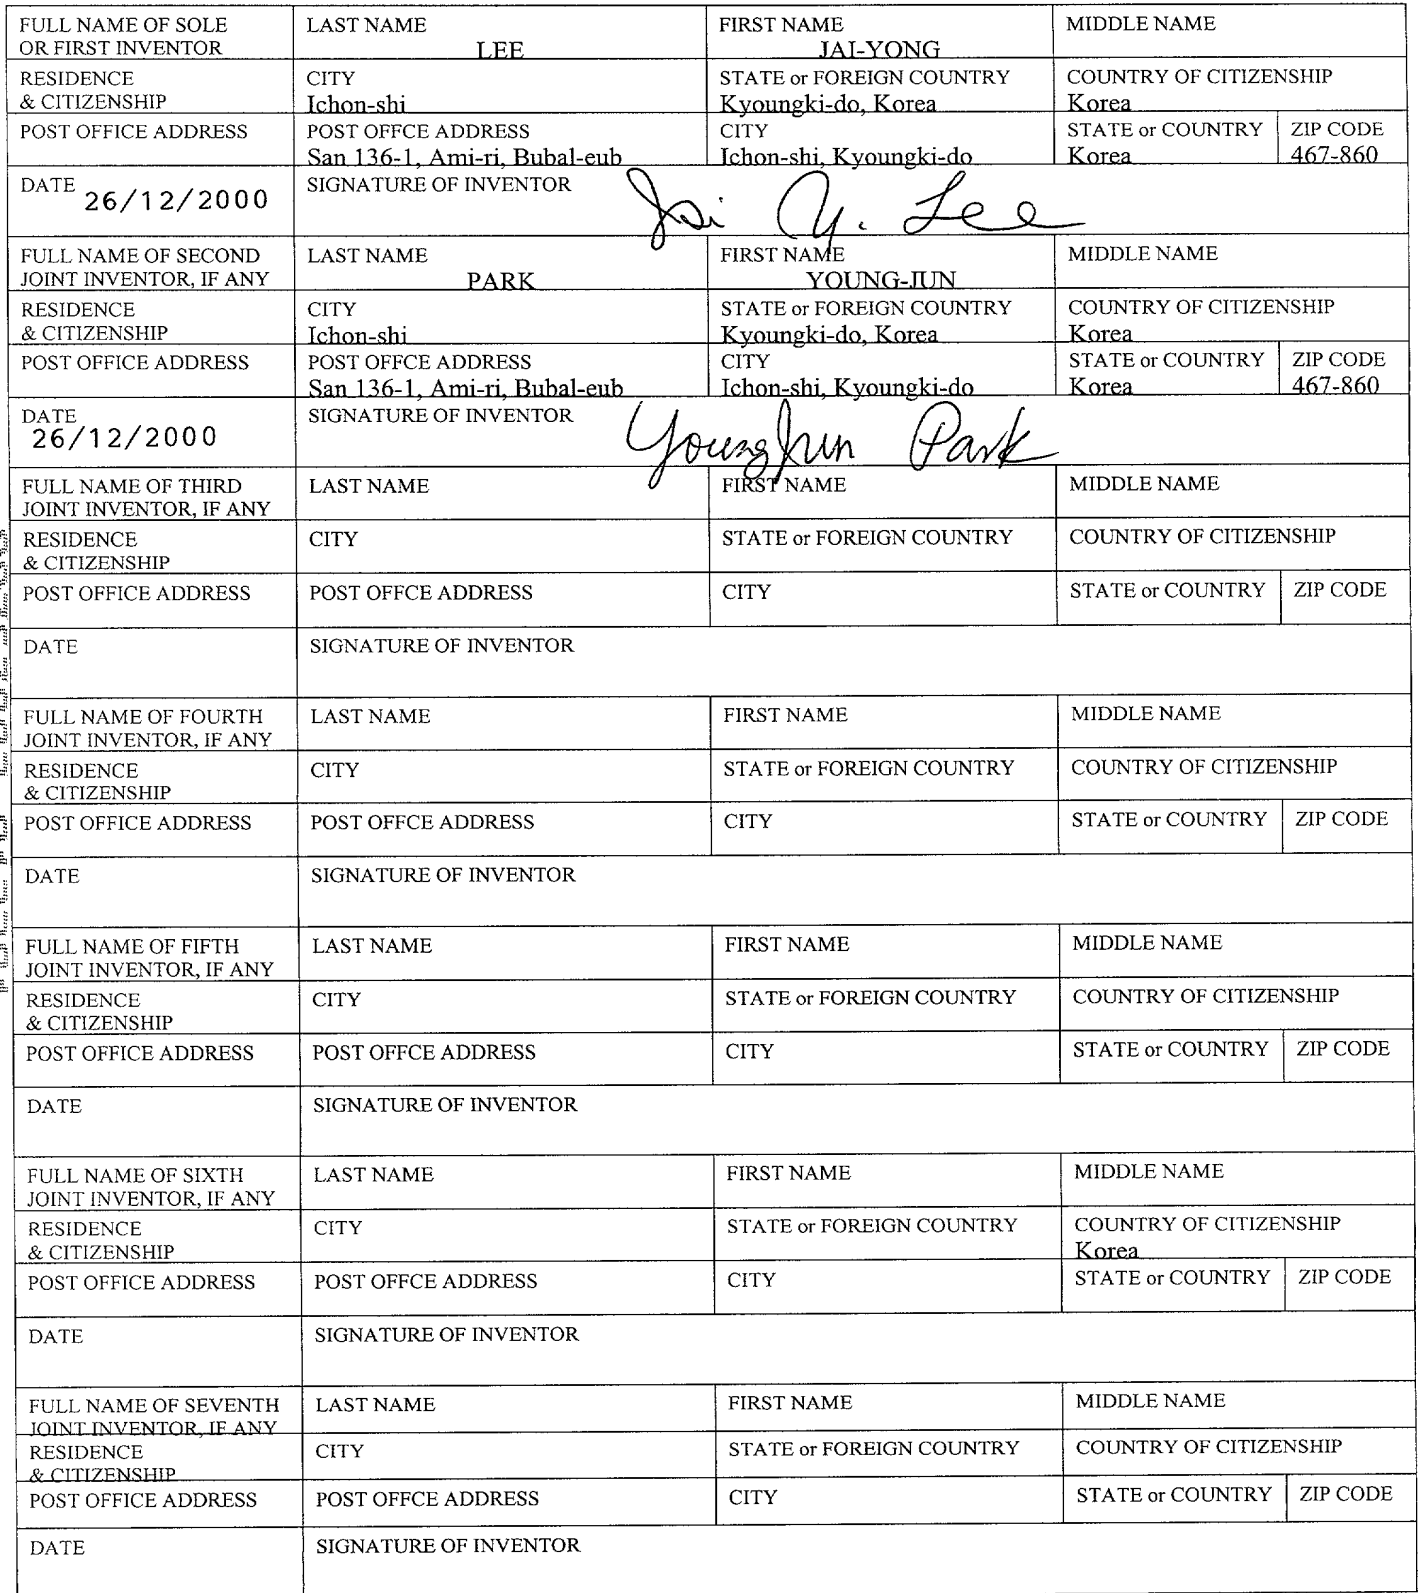 FULL NAME OF SOLE OR FIRST INVENTOR LAST NAME LEE FIRST NAME JAI-YONG MIDDLE NAME
RESIDENCE & CITIZENSHIP CITY Ichon-shi STATE or FOREIGN COUNTRY Kyoungki-do, Korea COUNTRY OF CITIZENSHIP Korea
POST OFFICE ADDRESS POST OFFCE ADDRESS San 136-1, Ami-ri, Bubal-eub CITY Ichon-shi, Kyoungki-do STATE or COUNTRY Korea ZIP CODE 467-860
DATE 26/12/2000 SIGNATURE OF INVENTOR Jai Y. Lee
FULL NAME OF SECOND JOINT INVENTOR, IF ANY LAST NAME PARK FIRST NAME YOUNG-JUN MIDDLE NAME
RESIDENCE & CITIZENSHIP CITY Ichon-shi STATE or FOREIGN COUNTRY Kyoungki-do, Korea COUNTRY OF CITIZENSHIP Korea
POST OFFICE ADDRESS POST OFFCE ADDRESS San 136-1, Ami-ri, Bubal-eub CITY Ichon-shi, Kyoungki-do STATE or COUNTRY Korea ZIP CODE 467-860
DATE 26/12/2000 SIGNATURE OF INVENTOR YoungJun Park
FULL NAME OF THIRD JOINT INVENTOR, IF ANY LAST NAME FIRST NAME MIDDLE NAME
RESIDENCE & CITIZENSHIP CITY STATE or FOREIGN COUNTRY COUNTRY OF CITIZENSHIP
POST OFFICE ADDRESS POST OFFCE ADDRESS CITY STATE or COUNTRY ZIP CODE
DATE SIGNATURE OF INVENTOR
FULL NAME OF FOURTH JOINT INVENTOR, IF ANY LAST NAME FIRST NAME MIDDLE NAME
RESIDENCE & CITIZENSHIP CITY STATE or FOREIGN COUNTRY COUNTRY OF CITIZENSHIP
POST OFFICE ADDRESS POST OFFCE ADDRESS CITY STATE or COUNTRY ZIP CODE
DATE SIGNATURE OF INVENTOR
FULL NAME OF FIFTH JOINT INVENTOR, IF ANY LAST NAME FIRST NAME MIDDLE NAME
RESIDENCE & CITIZENSHIP CITY STATE or FOREIGN COUNTRY COUNTRY OF CITIZENSHIP
POST OFFICE ADDRESS POST OFFCE ADDRESS CITY STATE or COUNTRY ZIP CODE
DATE SIGNATURE OF INVENTOR
FULL NAME OF SIXTH JOINT INVENTOR, IF ANY LAST NAME FIRST NAME MIDDLE NAME
RESIDENCE & CITIZENSHIP CITY STATE or FOREIGN COUNTRY COUNTRY OF CITIZENSHIP Korea
POST OFFICE ADDRESS POST OFFCE ADDRESS CITY STATE or COUNTRY ZIP CODE
DATE SIGNATURE OF INVENTOR
FULL NAME OF SEVENTH JOINT INVENTOR, IF ANY LAST NAME FIRST NAME MIDDLE NAME
RESIDENCE & CITIZENSHIP CITY STATE or FOREIGN COUNTRY COUNTRY OF CITIZENSHIP
POST OFFICE ADDRESS POST OFFCE ADDRESS CITY STATE or COUNTRY ZIP CODE
DATE SIGNATURE OF INVENTOR